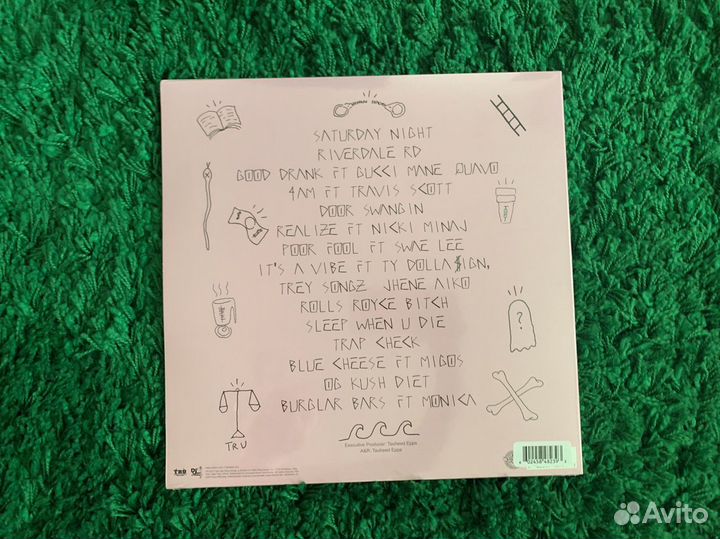 SATURDAY NIGHT
RIVERDALE RD
GOOD DRANK FT GUCCI MANE QUAVO
4AM FT TRAVIS SCOTT
DOOR SWANGIN
REALIZE FT NICKI MINAJ
POOR FOOL FT SWAE LEE
IT'S A VIBE FT TY DOLLA $IGN,
TREY SONGZ JHENE AIKO
ROLLS ROYCE BITCH
SLEEP WHEN U DIE
TRAP CHECK
BLUE CHEESE FT MIGOS
OG KUSH DIET
BURGLAR BARS FT MONICA
?
TRU
Executive Producer: Tauheed Epps
A&R: Tauheed Epps
TRU
Avito